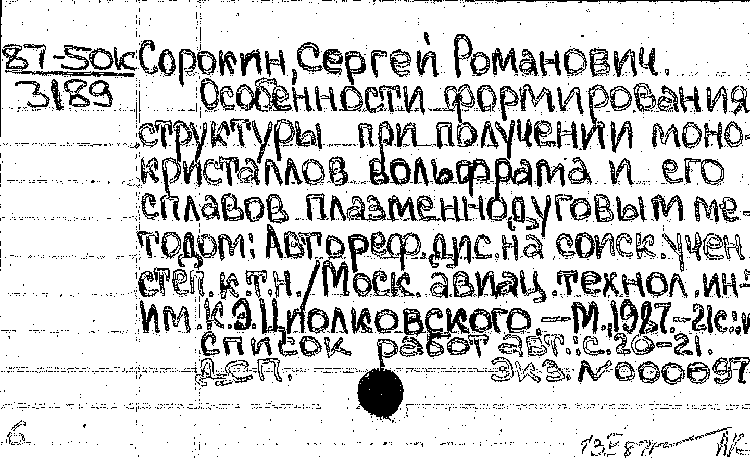 87-50к Сорокин, Сергей Романович.
3189 Особенности формирования
структуры при получении моно-
кристаллов вольфрама и его
сплавов плазменнодуговым ме-
тодом: Автореф. дис. на соиск. учен
степ. к.т.н. / Моск. авиац. технол. ин-
им. К.Э. Циолковского. — М., 1987. — 21с.: и
список работ авт.: с. 20-21.
Д.С.П. Экз. №000097
6